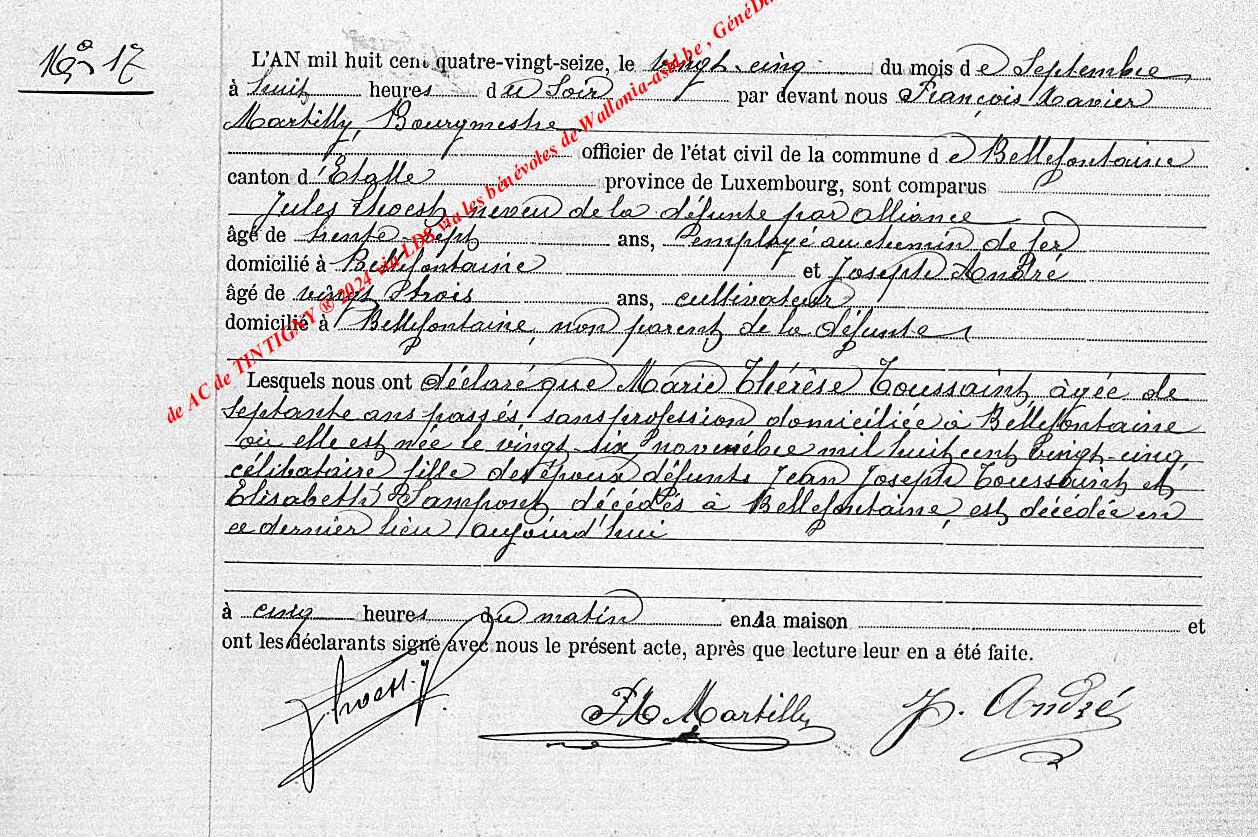 N° 17
L'AN mil huit cent quatre-vingt-seize, le vingt-cinq du mois de Septembre
à huit heures du Soir par devant nous François Xavier
Martilly, Bourgmestre
officier de l'état civil de la commune de Bellefontaine
canton d'Etalle province de Luxembourg, sont comparus
Jules Thoest, neveu de la défunte par alliance
âgé de trente-sept ans, employé au chemin de fer
domicilié à Bellefontaine et Joseph André
âgé de vingt trois ans, cultivateur
domicilié à Bellefontaine, non parent de la défunte,
Lesquels nous ont déclaré que Marie Thérèse Toussaint, âgée de
Septante ans passés, sans profession domiciliée à Bellefontaine
où elle est née le vingt-six novembre mil huit cent vingt-cinq,
célibataire fille des époux défunts Jean Joseph Toussaint et
Elisabeth Lampont décédés à Bellefontaine, est décédée en
ce dernier lieu aujourd'hui
à cinq heures du matin en la maison et
ont les déclarants signé avec nous le présent acte, après que lecture leur en a été faite.
Thoest. J
FX Martilly
J. André
de AC de TINTIGNY ® 2024 via LDS via les bénévoles de Wallonia-asbl.be , GénéDa